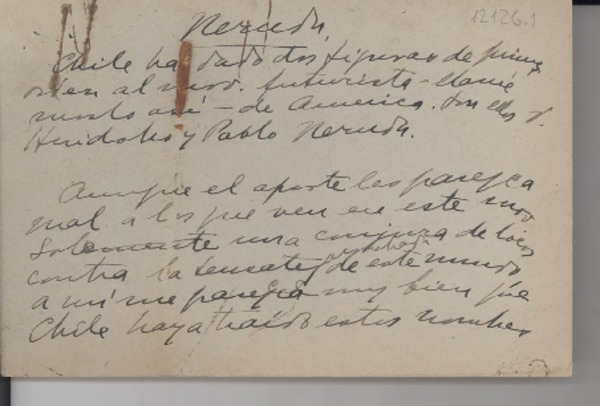 12126.1
Neruda
Chile ha dado dos figuras de primer
orden al mov. futurista - llamé
moslo así - de America. Son ellos V.
Huidobro y Pablo Neruda.
Aunque el aporte les parezca
mal a los que ven en este mov
solamente una conjura de locos
contra la sensatez de este mundo
a mí me parece muy bien que
Chile haya traído estos nombres